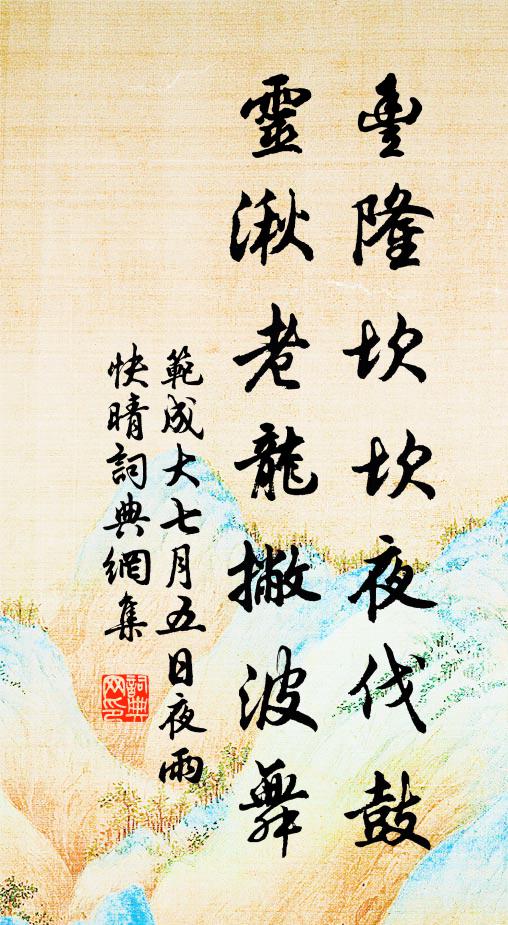 豐隆坎坎夜伐鼓
靈湫老龍撇波舞
範成大七月五日夜雨
快晴詞典網集
詞典
网印